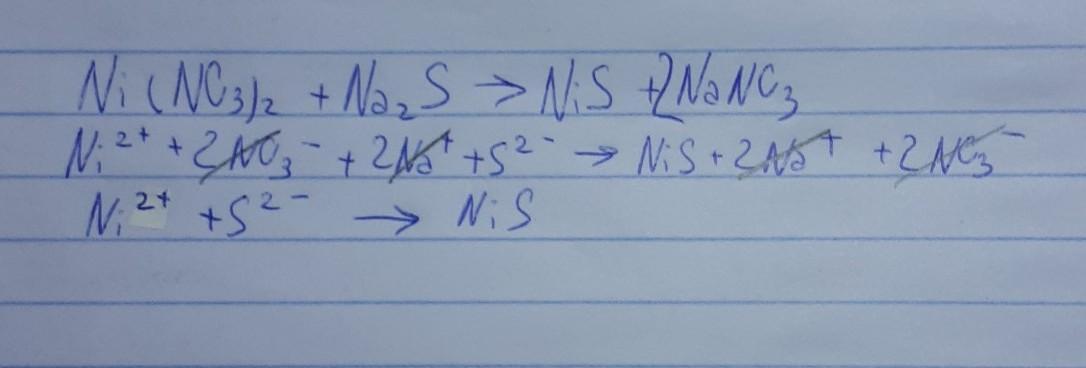 Ni(NO₃)₂ + Na₂S → NiS + 2NaNO₃
Ni²⁺ + 2NO₃⁻ + 2Na⁺ + S²⁻ → NiS + 2Na⁺ + 2NO₃⁻
Ni²⁺ + S²⁻ → NiS